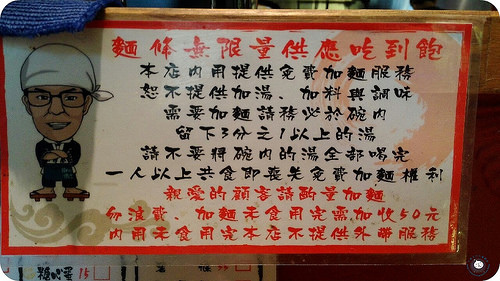 麵條無限量供應吃到飽
本店內用提供免費加麵服務
恕不提供加湯、加料與調味
需要加麵請務必於碗內
留下3分之1以上的湯
請不要將碗內的湯全部喝完
一人以上共食即喪失免費加麵權利
親愛的顧客請酌量加麵
勿浪費、加麵未食用完需加收50元
內用未食用完本店不提供外帶服務
15